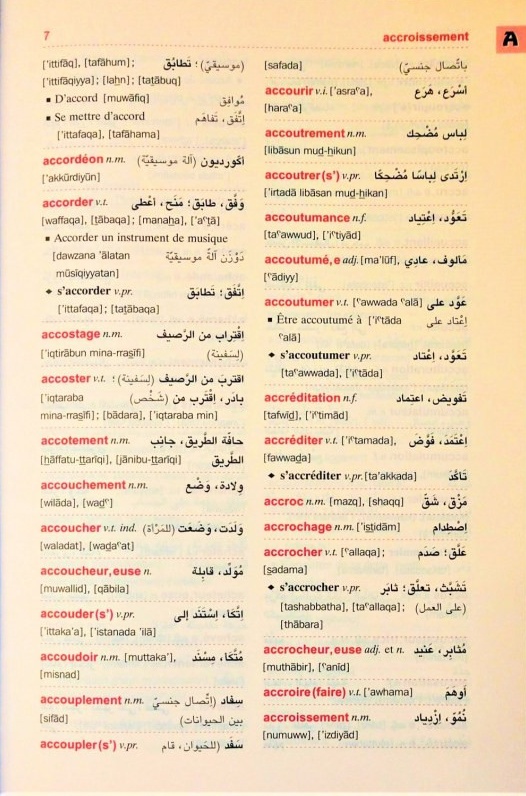 7
accroissement
A
['ittifāq], [tafāhum]; (موسيقيّ) ؛ تَطابُق
['ittifāqiyya]; [laḥn]; [taṭābuq]
▪ D'accord [muwāfiq] مُوافِق
▪ Se mettre d'accord إتَّفَق، تَفاهَم
['ittafaqa], [tafāhama]
accordéon n.m. أكورديون (آلة موسيقيّة)
['akkūrdiyūn]
accorder v.t. وَفَّق، طابَق؛ مَنَح، أعْطى
[waffaqa], [ṭābaqa]; [manaḥa], ['aʿṭā]
▪ Accorder un instrument de musique
[dawzana 'ālatan دَوْزَن آلةً موسيقيّة
mūsīqiyyatan]
◆ s'accorder v.pr. إتَّفَق؛ تَطابَق
['ittafaqa]; [taṭābaqa]
accostage n.m. اِقْتِراب من الرَّصيف
['iqtirābun mina-rraṣīfi] (لِسَفينة)
accoster v.t. اقتربَ من الرَّصيف (لِسَفينة)؛
['iqtaraba بادَر، اِقْتَرب من (شَخْص)
mina-rraṣīfi]; [bādara], ['iqtaraba min]
accotement n.m. حافّة الطَّريق، جانِب
[ḥāffatu-ṭṭarīqi], [jānibu-ṭṭarīqi] الطَّريق
accouchement n.m. وِلادة، وَضْع
[wilāda], [waḍʿ]
accoucher v.t. ind. وَلَدَت، وَضَعَت (للمَرْأة)
[waladat], [waḍaʿat]
accoucheur, euse n. مُوَلِّد، قابِلة
[muwallid], [qābila]
accouder (s') v.pr. اِتَّكَأ، اِسْتَنَد إلى
['ittaka'a], ['istanada 'ilā]
accoudoir n.m. [muttaka'], مُتَّكَأ، مِسْنَد
[misnad]
accouplement n.m. سِفاد (اِتِّصال جنسيّ
[sifād] بين الحيوانات)
accoupler (s') v.pr. سَفَد (للحَيوان، قام
[safada] باتِّصال جنسيّ)
accourir v.i. ['asraʿa], أسْرَع، هَرَع
[haraʿa]
accoutrement n.m. لِباس مُضْحِك
[libāsun muḍ-ḥikun]
accoutrer (s') v.pr. اِرْتَدى لِباسًا مُضْحِكًا
['irtadā libāsan muḍ-ḥikan]
accoutumance n.f. تَعَوُّد، اِعْتِياد
[taʿawwud], ['iʿtiyād]
accoutumé, e adj. [ma'lūf], مَألوف، عادِي
[ʿādiyy]
accoutumer v.t. [ʿawwada ʿalā] عَوَّد على
▪ Être accoutumé à ['iʿtāda اِعْتاد على
ʿalā]
◆ s'accoutumer v.pr. تَعَوَّد، اِعْتاد
[taʿawwada], ['iʿtāda]
accréditation n.f. تَفويض، اعتِماد
[tafwīḍ], ['iʿtimād]
accréditer v.t. ['iʿtamada], اِعْتَمَد، فَوَّض
[fawwaḍa]
◆ s'accréditer v.pr. [ta'akkada] تَأكَّد
accroc n.m. [mazq], [shaqq] مَزْق، شَقّ
accrochage n.m. ['iṣṭidām] اِصْطِدام
accrocher v.t. [ʿallaqa]; عَلَّق؛ صَدَم
[ṣadama]
◆ s'accrocher v.pr. تَشَبَّث، تعلَّق؛ ثابَر
[tashabbatha], [taʿallaqa]; (على العمل)
[thābara]
accrocheur, euse adj. et n. مُثابِر، عَنيد
[muthābir], [ʿanīd]
accroire (faire) v.t. ['awhama] أوهَمَ
accroissement n.m. نُمُوّ، اِزْدِياد
[numuww], ['izdiyād]